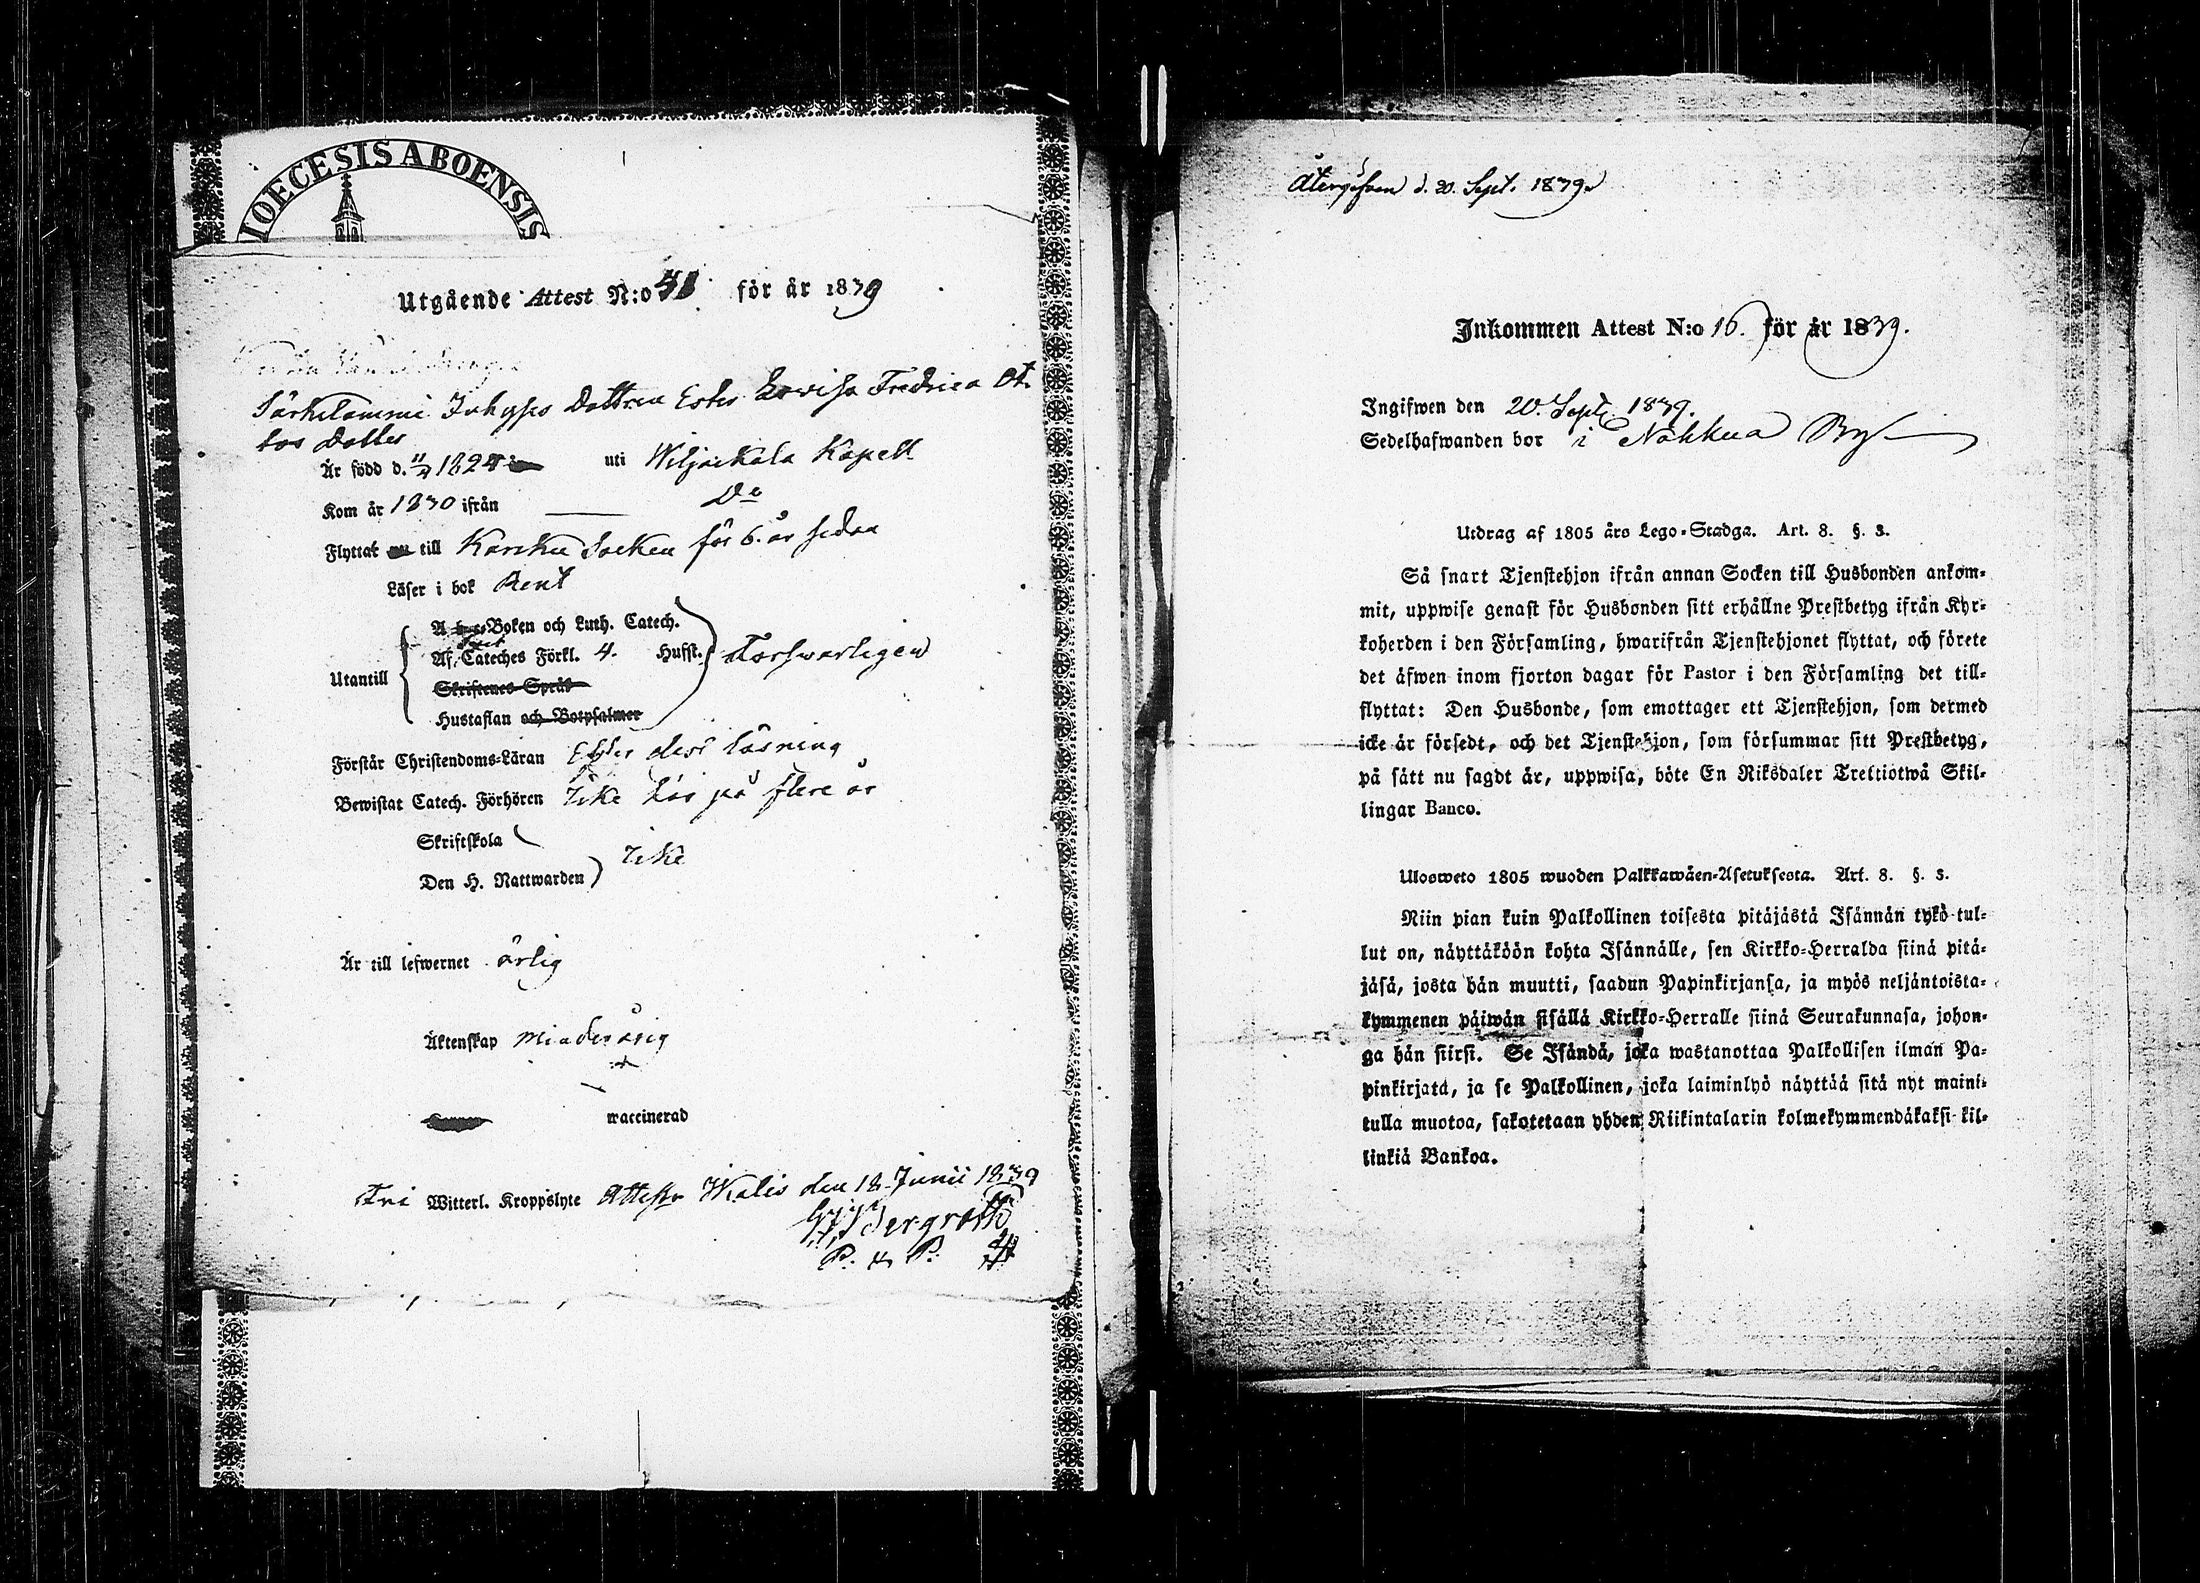 IOECESIS ABOENSIS
Utgående Attest N:o 41 för år 1839
Särkilammi Inhyses Dottren Ester Lovisa Fredrica Ot-
tos Dotter
Är född d. 1824 uti Wiljakkala Kapell
Kom år 1830 ifrån — Do
Flyttat nu till Karkku Socken för 6. år sedan
Läser i bok Rent
A b c-Boken och Luth. Catech.
Af Cateches Förkl. 4. Hufst. Forsvarligen
Utantill
Skriftenes Språk
Hustaflan och Botpsalmer
Förstår Christendoms-Läran Efter dess läsning
Bewistat Catech. Förhören Icke här på flere år
Skriftskola
Icke
Den H. Nattwarden
Är till lefwernet ärlig
Äktenskap Minderårig
waccinerad
Fri Witterl. Kroppslyte Attester Ikalis den 18 Junii 1839
Bergroth
P. & P.
Återgifven d. 20. Sept. 1839.
Inkommen Attest N:o 16. för år 1839.
Ingifwen den 20. Sept. 1839.
Sedelhafwanden bor i Nohkua By
Utdrag af 1805 års Lego-Stadga. Art. 8. §. 3.
Så snart Tjenstehjon ifrån annan Socken till Husbonden ankom-
mit, uppwise genast för Husbonden sitt erhållne Prestbetyg ifrån Kyr-
koherden i den Församling, hwarifrån Tjenstehjonet flyttat, och förete
det äfwen inom fjorton dagar för Pastor i den Församling det till-
flyttat: Den Husbonde, som emottager ett Tjenstehjon, som dermed
icke är försedt, och det Tjenstehjon, som försummar sitt Prestbetyg,
på sätt nu sagdt är, uppwisa, böte En Riksdaler Trettiotwå Skil-
lingar Banco.
Ulosweto 1805 wuoden Palkkawäen-Asetuksesta. Art. 8. §. 3.
Niin pian kuin Palkollinen toisesta pitäjästä Isännän tykö tul-
lut on, näyttäköön kohta Isännälle, sen Kirkko-Herralda siinä pitä-
jäsä, josta hän muutti, saadun Papinkirjansa, ja myös neljäntoista-
kymmenen päiwän sisällä Kirkko-Herralle siinä Seurakunnasa, johon-
ga hän siirsi. Se Isändä, joka wastanottaa Palkollisen ilman Pa-
pinkirjatä, ja se Palkollinen, joka laiminlyö näyttää sitä nyt maini-
tulla muotoa, sakotetaan yhden Riikintalarin kolmekymmendäkaksi kil-
linkiä Bankoa.